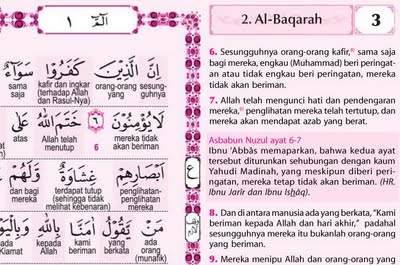 الٓمّٓ ١
إِنَّ الَّذِيْنَ كَفَرُوْا سَوَآءٌ
sesung-guhnya orang-orang yang kafir dan ingkar (terhadap Allah dan Rasul-Nya) sama saja
لَا يُؤْمِنُوْنَ ٦ خَتَمَ اللّٰهُ
mereka tidak akan beriman 6 Allah telah menutup atas
اَبْصَارِهِمْ غِشَاوَةٌ وَّلَهُمْ
penglihatan-penglihatan mereka terdapat tutup (sehingga tidak melihat kebenaran) dan bagi mereka
مَنْ يَّقُوْلُ اٰمَنَّا بِاللّٰهِ وَبِالْيَوْمِ
ada orang (munafik) yang berkata kami beriman kepada Allah Kiamat
ع
2. Al-Baqarah 3
6. Sesungguhnya orang-orang kafir, sama saja
bagi mereka, engkau (Muhammad) beri peringat-
an atau tidak engkau beri peringatan, mereka
tidak akan beriman.
7. Allah telah mengunci hati dan pendengaran
mereka, penglihatan mereka telah tertutup, dan
mereka akan mendapat azab yang berat.
Asbabun Nuzul ayat 6-7
Ibnu 'Abbâs memaparkan, bahwa kedua ayat
tersebut diturunkan sehubungan dengan kaum
Yahudi Madinah, yang meskipun diberi peri-
ngatan, mereka tetap tidak akan beriman. (HR.
Ibnu Jarîr dan Ibnu Ishâq).
8. Dan di antara manusia ada yang berkata, "Kami
beriman kepada Allah dan hari akhir," padahal
sesungguhnya mereka itu bukanlah orang-orang
yang beriman.
9. Mereka menipu Allah dan orang-orang yang